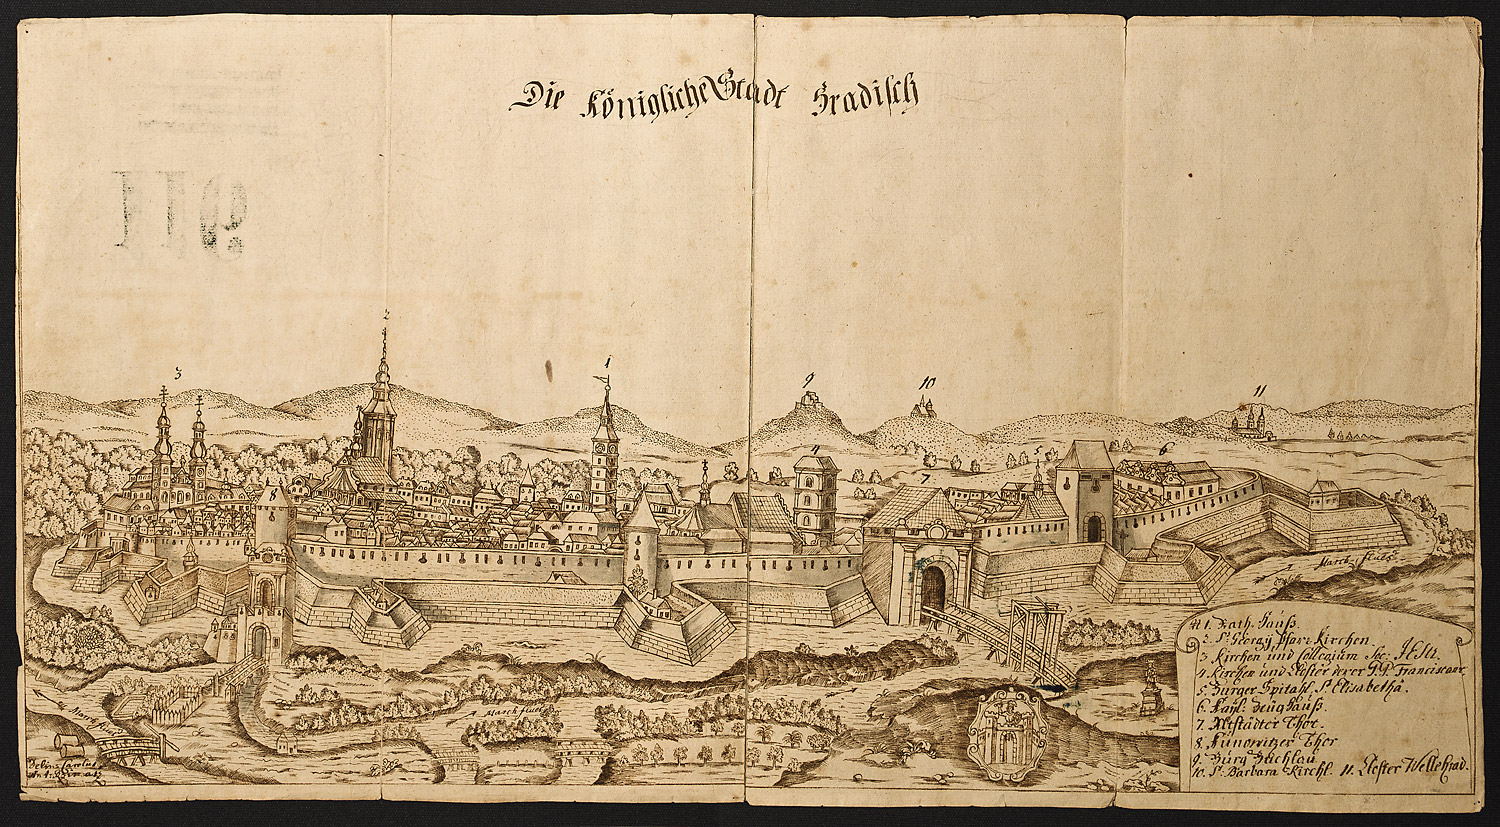 Die Königliche Stadt Hradisch
3
2
1
9
10
11
8
4
7
5
6
March fluss
March fluss
A March fluss
Delin: Carolus
Ant:
№ 1. Rath Hauß.
2. S. Georgÿ Pfar: Kirchen
3 Kirchen und Collegium Soc: JESU.
4 Kirchen und Closter derer P.P. Franciscaner
5 Bürger Spitahl S. Elisabetha.
6 Kaÿl. Zeug Hauß.
7. Altstädter Thor.
8. Kunowitzer Thor
9. Burg Buchlau
10. S. Barbara Kirchl. 11. Closter Wellehrad.